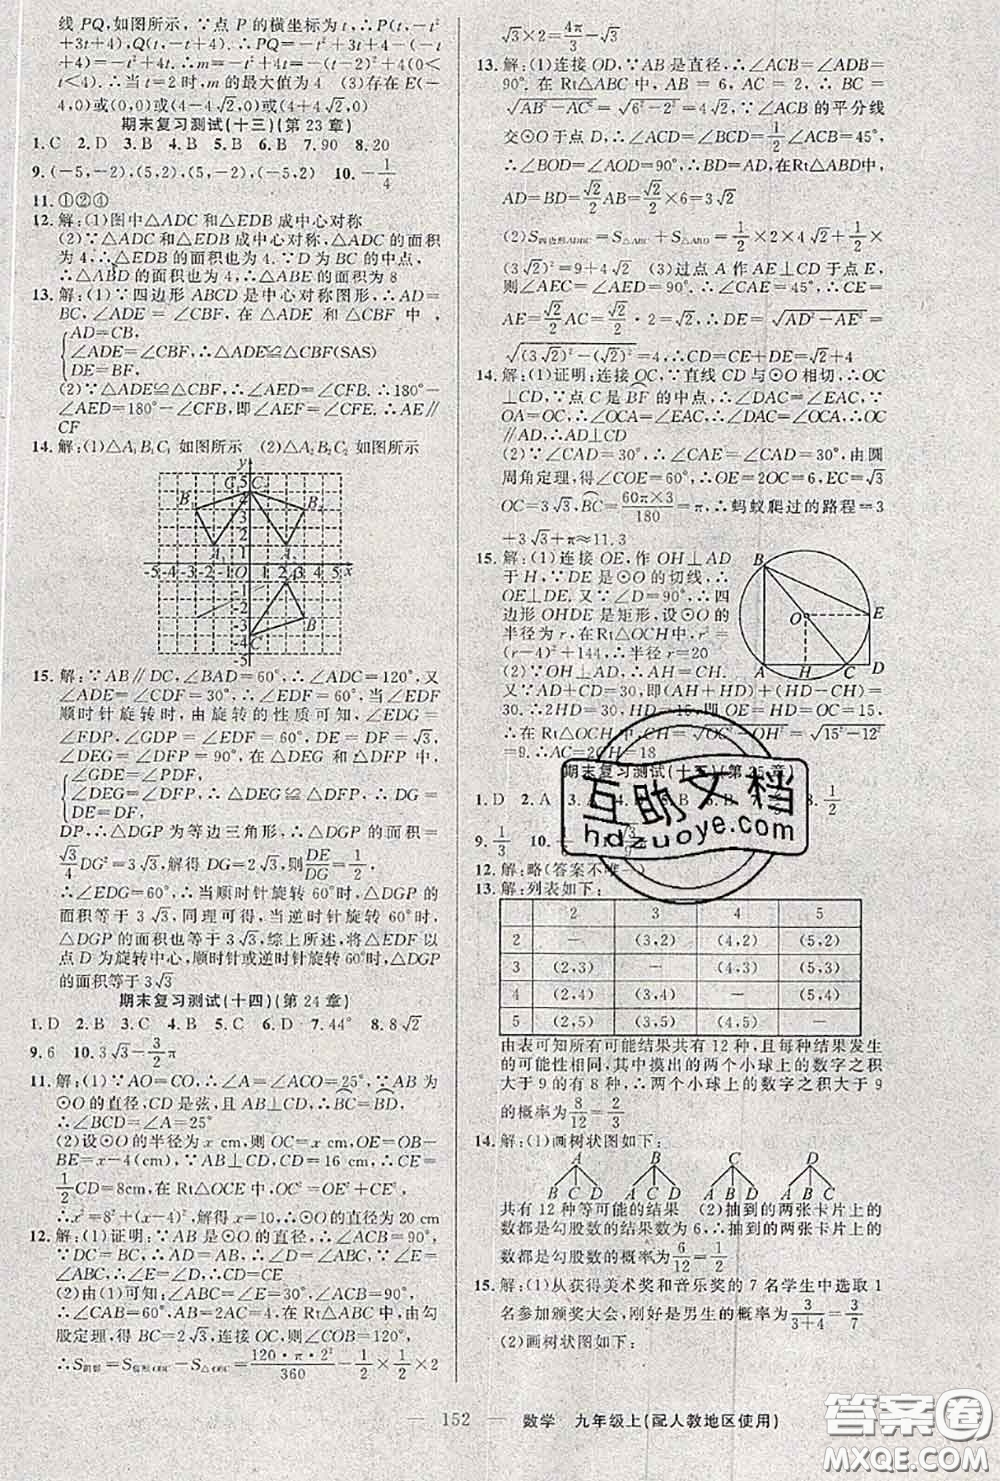 线 PQ,如图所示,∵点 P 的横坐标为 t,∴P(t,-t²
+3t+4),Q(t,-t+4).∴PQ=-t²+3t+4-(-t+
4)=-t²+4t.∴m=-t²+4t=-(t-2)²+4(0<
t<4).∴当 t=2时,m 的最大值为 4　(3)存在 E(-
4,0)或(0,0)或(4-4√2,0)或(4+4√2,0)
期末复习测试(十三)(第 23 章)
1.C　2.D　3.B　4.B　5.B　6.B　7.90　8.20
9.(-5,-2),(5,-2),(5,2)　10.-1/4
11.①②④
12.解:(1)图中△ADC 和△EDB 成中心对称
(2)∵△ADC 和△EDB 成中心对称,△ADC 的面积
为 4,∴△EDB 的面积也为 4,∵D 为 BC 的中点,
∴△ABD 的面积也为 4,∴△ABE 的面积为 8
13.解:(1)∵四边形 ABCD 是中心对称图形,∴AD=
BC,∠ADE=∠CBF,在△ADE 和△CBF 中,
{AD=CB,
∠ADE=∠CBF,∴△ADE≌△CBF(SAS)
DE=BF,
(2)∵△ADE≌△CBF,∴∠AED=∠CFB,∴180°-
∠AED=180°-∠CFB,即∠AEF=∠CFE.∴AE∥
CF
14.解:(1)△A₁B₁C₁ 如图所示　(2)△A₂B₂C₂ 如图所示
15.解:∵AB∥DC,∠BAD=60°,∴∠ADC=120°,又
∠ADE=∠CDF=30°,∴∠EDF=60°,当∠EDF
顺时针旋转时,由旋转的性质可知,∠EDG=
∠FDP,∠GDP=∠EDF=60°,DE=DF=√3,
∠DEG=∠DFP=90°,在△DEG 和△DFP 中,
{∠GDE=∠PDF,
∠DEG=∠DFP,∴△DEG≌△DFP,∴DG=
DE=DF,
DP,∴△DGP 为等边三角形,∴△DGP 的面积=
√3/4 DG²=3√3,解得 DG=2√3,则 DE/DG=1/2,
∴∠EDG=60°,∴当顺时针旋转 60°时,△DGP 的
面积等于 3√3,同理可得,当逆时针旋转 60°时,
△DGP 的面积也等于 3√3,综上所述,将∠EDF 以
点 D 为旋转中心,顺时针或逆时针旋转 60°时△DGP
的面积等于 3√3
期末复习测试(十四)(第 24 章)
1.D　2.B　3.C　4.B　5.C　6.D　7.44°　8.8√2
9.6　10.3√3-3/2π
11.解:(1)∵AO=CO,∴∠A=∠ACO=25°,∵AB 为
⊙O 的直径,CD 是弦,且 AB⊥CD,∴BC=BD,
∴∠BCD=∠A=25°
(2)设⊙O 的半径为 x cm,则 OC=x cm,OE=OB-
BE=x-4(cm),∵AB⊥CD,CD=16 cm,∴CE=
1/2CD=8cm,在 Rt△OCE 中,OC²=CE²+OE²,
∴x²=8²+(x-4)²,解得 x=10,∴⊙O 的直径为 20 cm
12.解:(1)证明:∵AB 是⊙O 的直径,∴∠ACB=90°,
∵DC=BC,∴AD=AB,∴∠D=∠ABC,∵∠E=
∠ABC,∴∠E=∠D
(2)由(1)可知:∠ABC=∠E,∵∠E=60°,∴∠ABC
=60°,∵AB=4,∴BO=2AC=4.在 Rt△ABC 中,由勾
股定理,得 BC=2√3,连接 OC,则∠COB=120°,
∴S阴影=S扇形OBC-S△OBC=120·π·2²/360-1/2×1/2×2
√3×2=4π/3-√3
13.解:(1)连接 OD,∵AB 是直径,∴∠ACB=∠ADB=
90°.在 Rt△ABC 中,AB=6,AC=2,∴BC=
√AB²-AC²=√6²-2²=4√2.∵∠ACB 的平分线
交⊙O 于点 D,∴∠BCD=∠ACD=1/2∠ACB=45°,
∴∠BOD=∠AOD=90°,∴在 Rt△ABD 中,
AD=BD=√2/2AB=√2/2×6=3√2
(2)S四边形ADBC=S△ABC+S△ABD=1/2×2×4√2+1/2×
(3√2)²=9+4√2　(3)过点 A 作 AE⊥CD 于点 E,
则∠AEC=∠AED=90°,∵∠ACD=45°,∴CE=
AE=√2/2AC=√2/2·2=√2,∴DE=√AD²-AE²=
√(3√2)²-(√2)²=4,∴CD=CE+DE=√2+4
14.解:(1)证明:连接 OC,∵直线 CD 与⊙O 相切,∴OC
⊥CD.∵点 C 是 BF 的中点,∴∠DAC=∠EAC,∵
OA=OC,∴∠OCA=∠EAC,∴∠DAC=∠OCA,∴OC
∥AD,∴AD⊥CD
(2)∵∠CAD=30°,∴∠CAE=∠CAD=30°,由圆
周角定理,得∠COE=60°,∴OE=2OC=6,EC=√3
OC=3√3,BC=60π×3/180=π,∴蚂蚁爬过的路程=3
+3√3+π≈11.3
15.解:(1)连接 OE,作 OH⊥AD
于 H,∵DE 是⊙O 的切线,∴
OE⊥DE.又∵∠D=90°,∴四
边形 OHDE 是矩形,设⊙O 的
半径为 r,在 Rt△OCH 中,r²=
(r-4)²+144,∴半径 r=20
(2)∵OH⊥AD,∴AH=CH.
又∵AD-CD=30,即(AH+HD)-(HD-CH)=
30.∴2HD=30,HD=15,∵OE=HD=OC=15,
∴在 Rt△OCH 中,CH=√OC²-OH²=√15²-12²=
9.∴AC=2CH=18
期末复习测试(十五)(第 25 章)
1.D　2.A　3.A　8.1/2
9.1/3
12.解:略(答案不唯一)
13.解:列表如下:
2　3　4　5
2　—　(3,2)　(4,2)　(5,2)
3　(2,3)　—　(4,3)　(5,3)
4　(2,4)　(3,4)　—　(5,4)
5　(2,5)　(3,5)　(4,5)　—
由表可知所有可能结果共有 12 种,且每种结果发生
的可能性相同,其中摸出的两个小球上的数字之积
大于 9 的有 8 种,∴两个小球上的数字之积大于 9
的概率为 8/12=2/3
14.解:(1)画树状图如下:
A　B　C　D
B C D　A C D　A B D　A B C
共有 12 种等可能的结果　(2)抽到的两张卡片上的
数都是勾股数的结果数为 6,∴抽到的两张卡片上的
数都是勾股数的概率为 6/12=1/2
15.解:(1)从获得美术奖和音乐奖的 7 名学生中选取 1
名参加颁奖大会,刚好是男生的概率为 3/(3+4)=3/7
(2)画树状图如下:
— 152 —　数学　九年级上(配人教地区使用)
互助文档
hdzuoye.com
答案圈
MXQE.COM